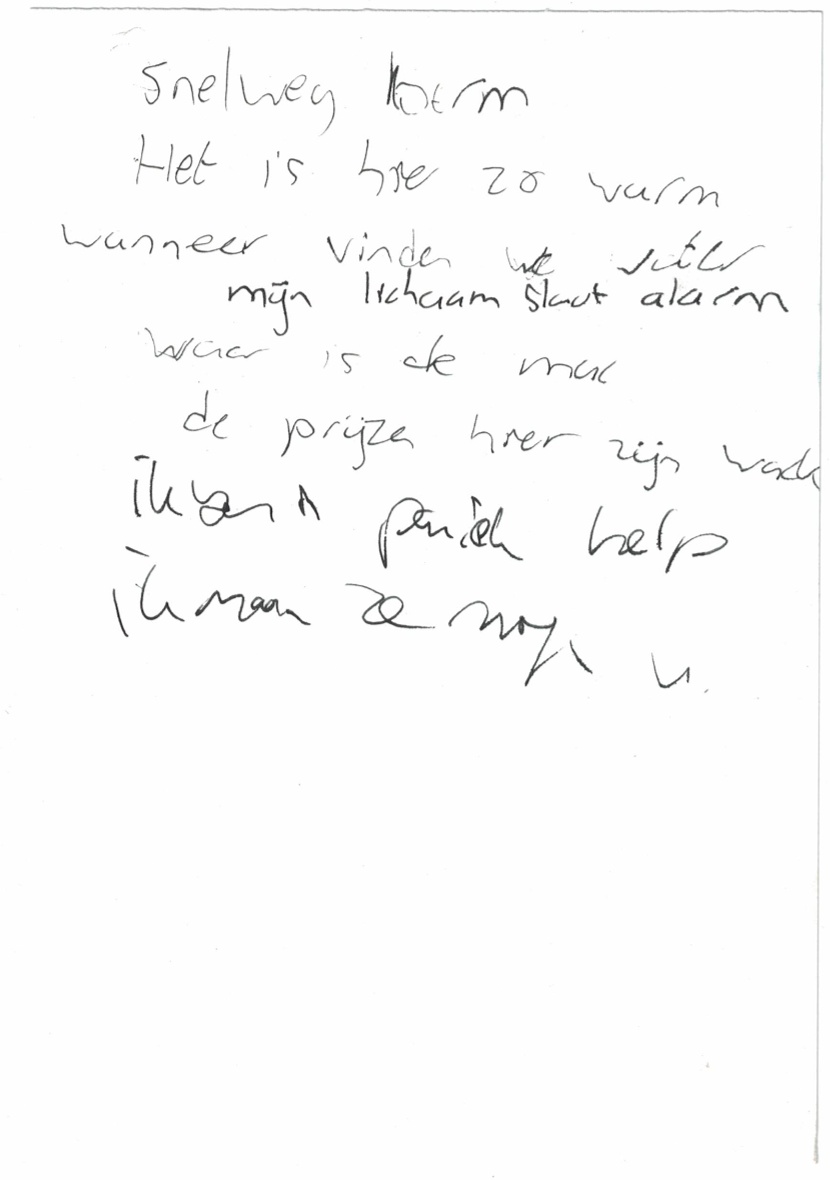 Snelweg
Het is hier zo warm
wanneer vinden we
mijn lichaam slaat alarm
Waar is de mac
de prijzen hier zijn
ik ben paniek help
ik maan ze